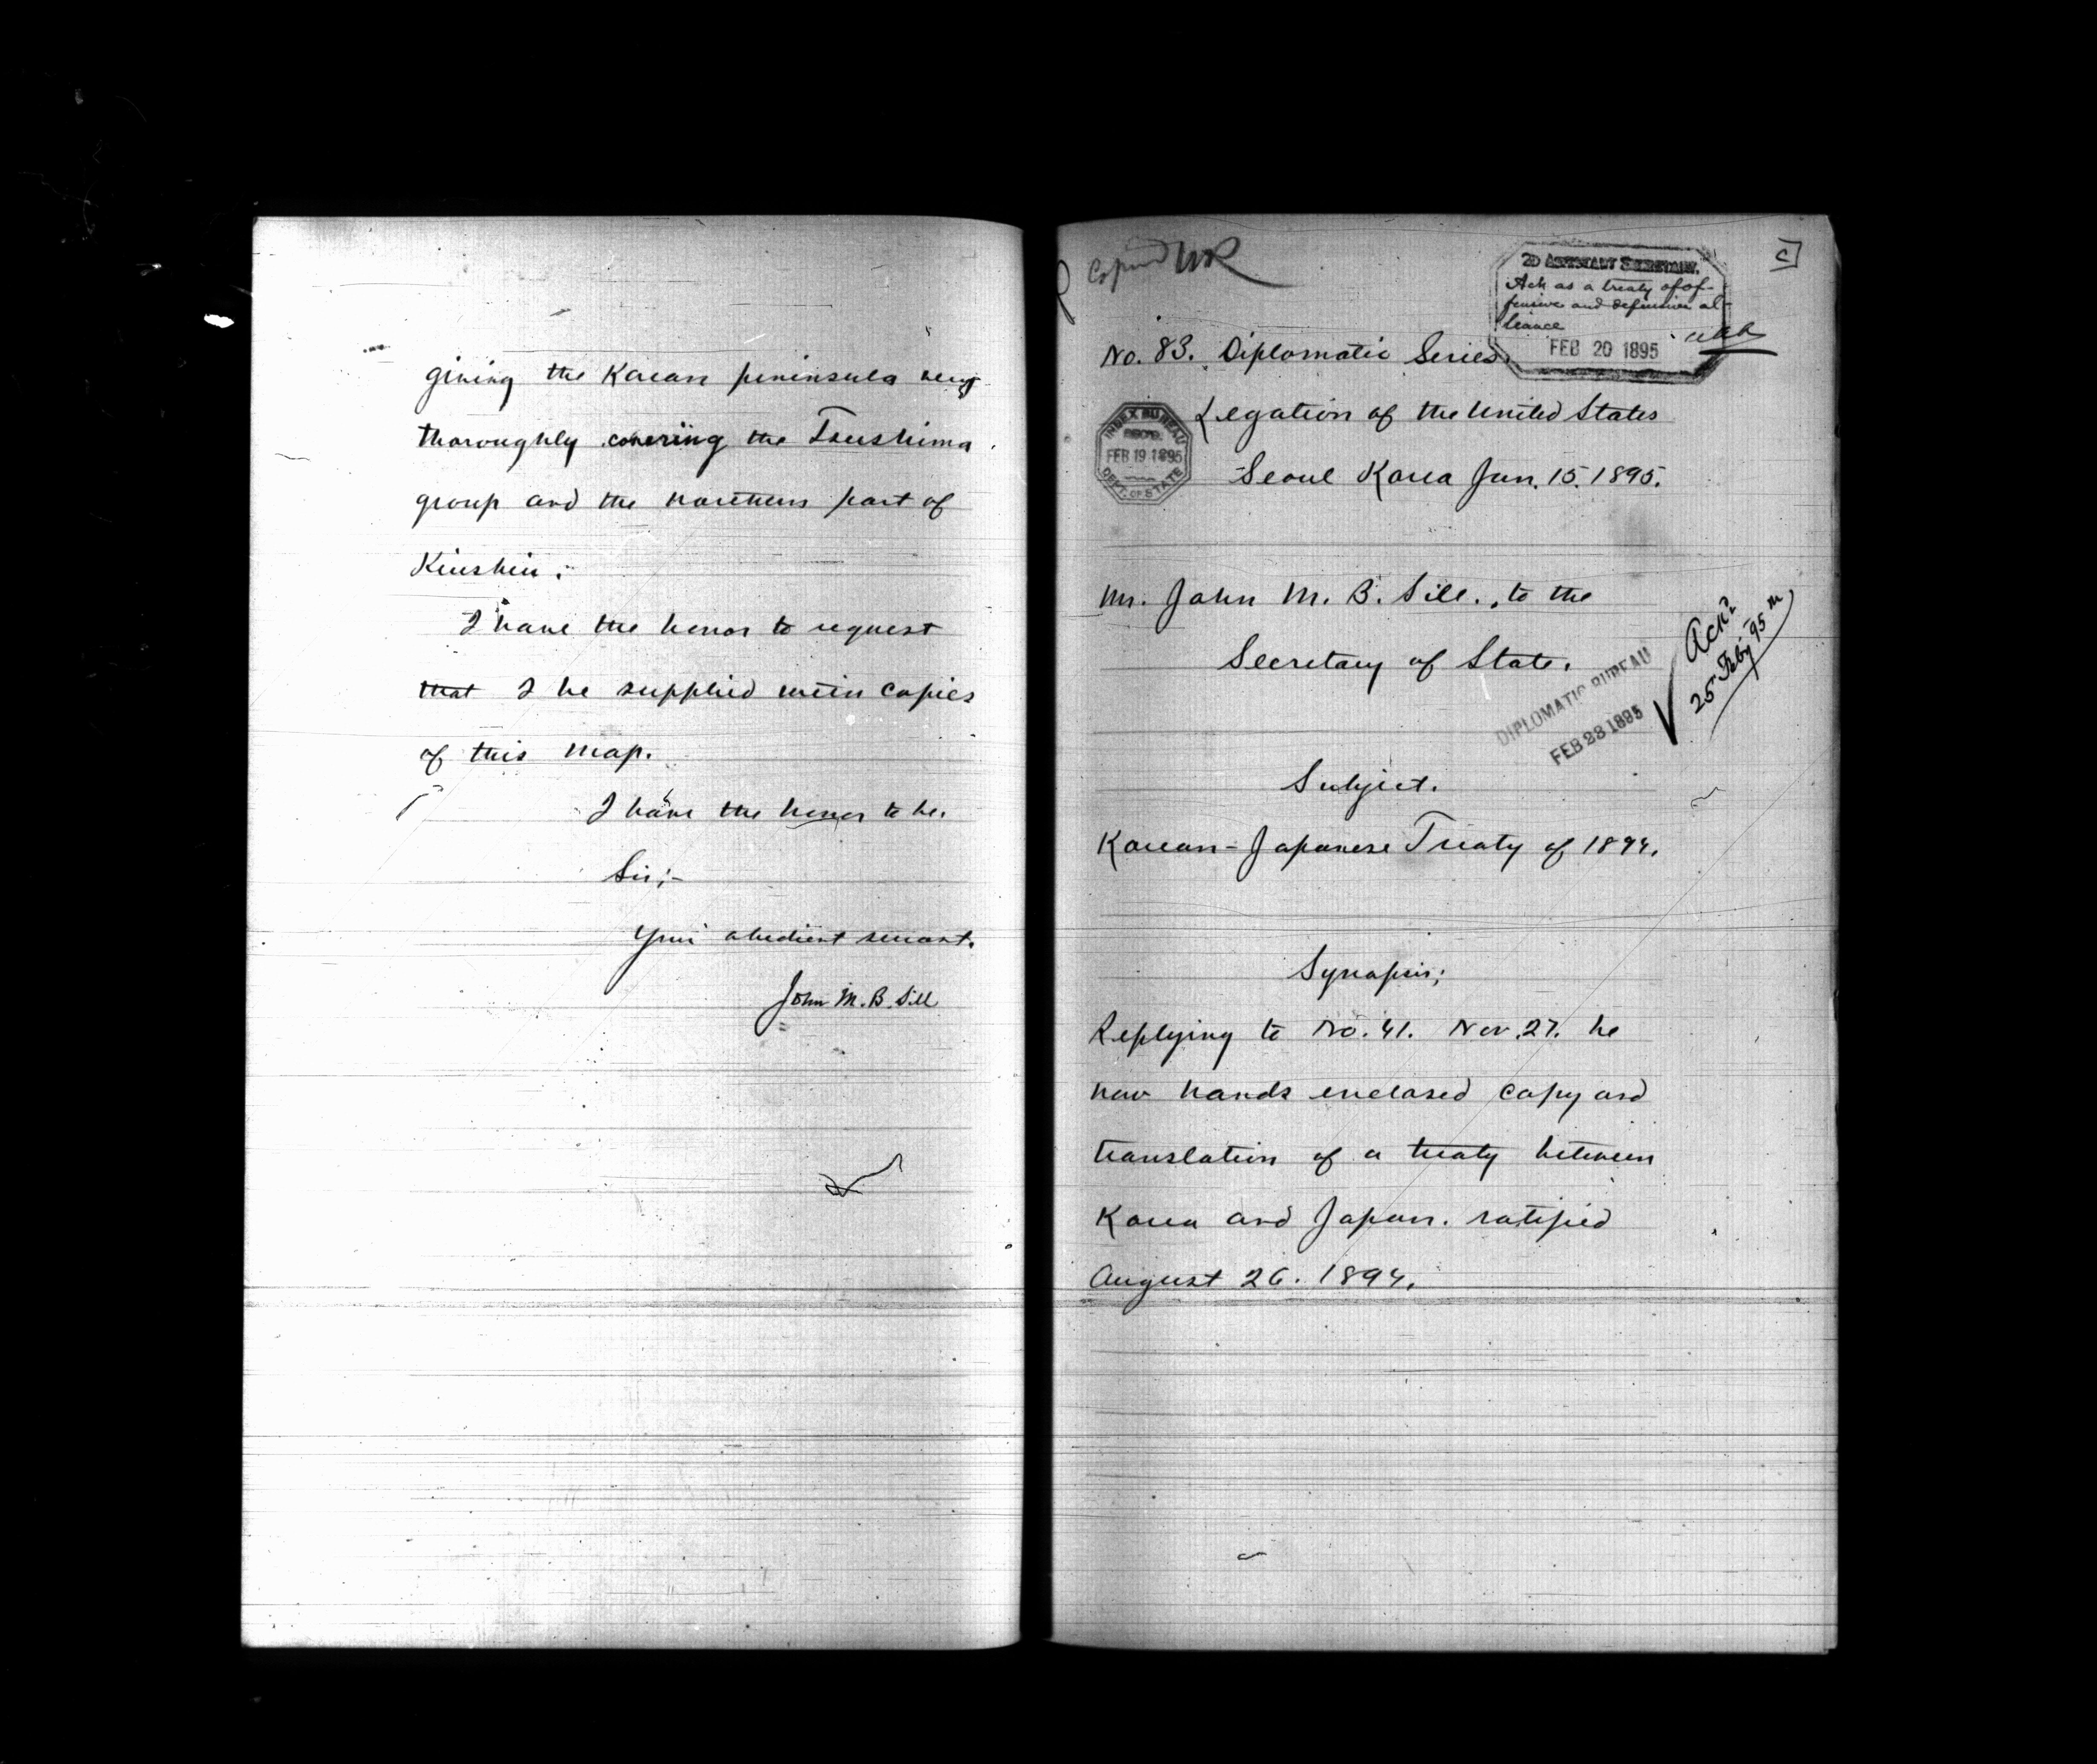 giving the Korean peninsula very
thoroughly covering the Tsushima
group and the northern part of
Kiushiu.
I have the honor to request
that I be supplied with copies
of this map.
I have the honor to be.
Sir;-
Your obedient servant.
John M. B. Sill
Copied
C
2D ASSISTANT SECRETARY.
Ack as a treaty of of-
fensive and defensive al-
liance
FEB 20 1895
No. 83. Diplomatic Series
Legation of the United States
INDEX BUREAU
REC'D.
FEB 19 1895
DEPT. OF STATE
Seoul Korea Jan. 15. 1895.
Mr. John M. B. Sill., to the
Secretary of State.
DIPLOMATIC BUREAU
FEB 23 1895
Ackd
25 Feby '95
Subject.
Korean-Japanese Treaty of 1894.
Synopsis;
Replying to No. 41. Nov. 27. he
now hands enclosed copy and
translation of a treaty between
Korea and Japan. ratified
August 26. 1894.